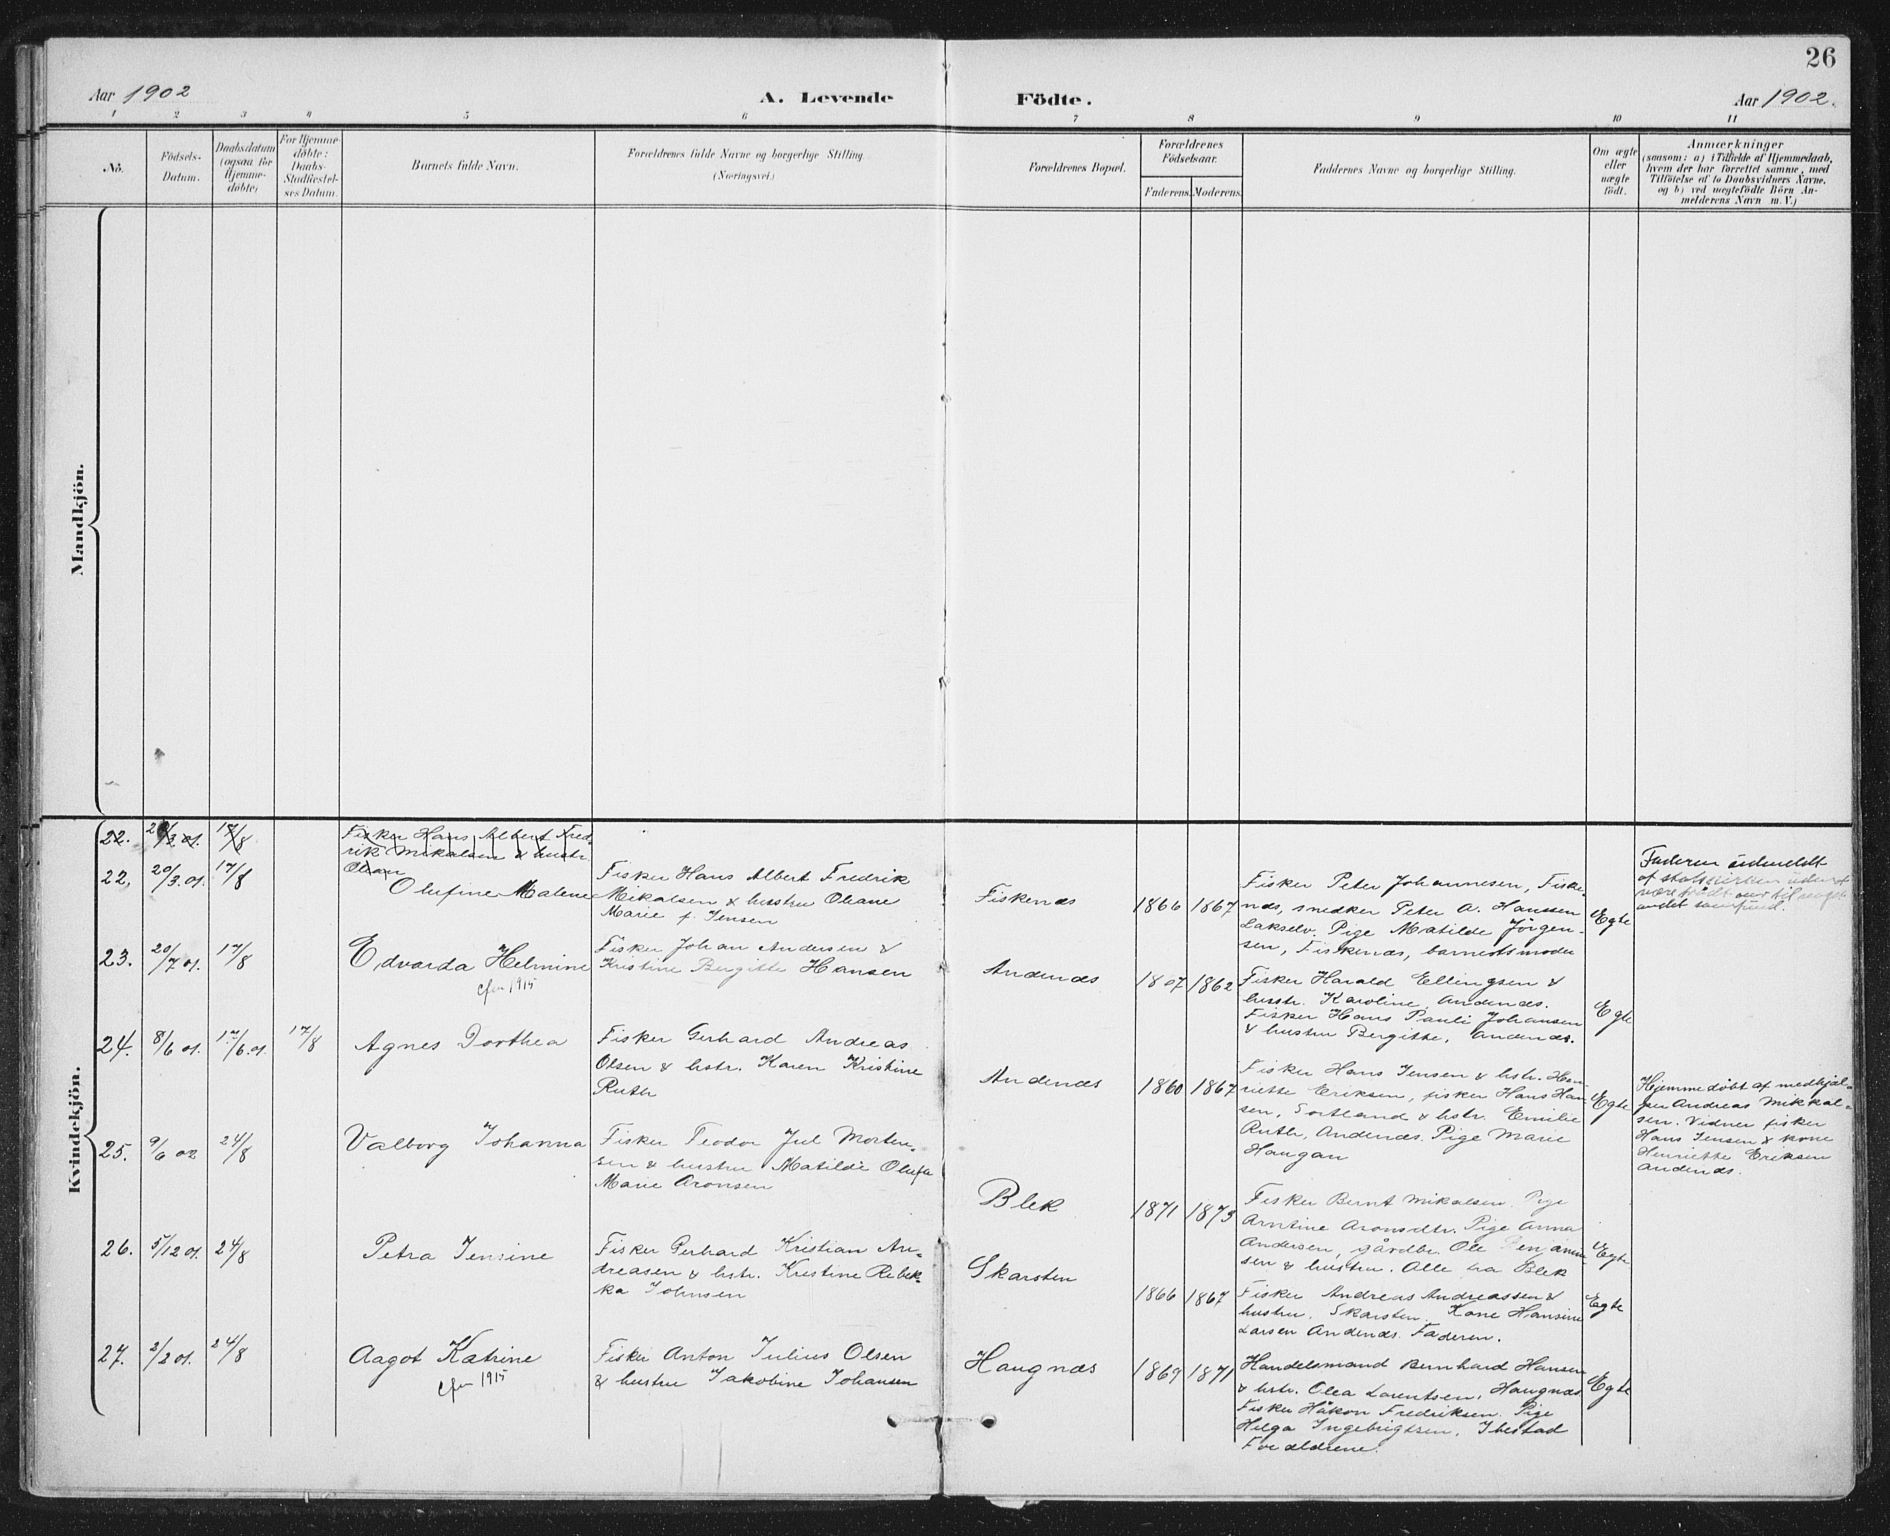 26
Aar 1902
A. Levende Födte.
Aar 1902.
1 2 3 4 5 6 7 8 9 10 11
No.
Födsels-
Datum.
Daabsdatum
(ogsaa for
Hjemme-
döbte)
For Hjemme-
døbte:
Daabs-
Stadfæstel-
ses Datum.
Barnets fulde Navn.
Forældrenes fulde Navne og borgerlige Stilling
(Næringsvei.)
Forældrenes Bopæl.
Forældrenes
Födselsaar.
Faderens. Moderens.
Faddernes Navne og borgerlige Stilling.
Om ægte
eller
uægte
födt.
Anmærkninger
(saasom: a) i Tilfælde af Hjemmedaab,
hvem der har forrettet samme, med
Tilföielse af to Daabsvidners Navne,
og b) ved uægtefödte Börn An-
melderens Navn m. V.)
Mandkjön.
Kvindekjön.
22. 20/3.01. 17/8
Fisker Hans Albert Fred-
rik Mikalsen & hustr.
22, 20/3.01. 17/8
Olufine Malene
Fisker Hans Albert Fredrik
Mikalsen & hustru Oliane
Marie f. Jensen
Fiskenæs
1866 1867
Fisker Peter Johannesen, Fiske-
næs, snedker Peter A. Hanssen
Lakselv. Pige Matilde Jörgen-
sen, Fiskenæs, barnetsmoder
Egte
Faderen udmeldt
af statskirken uden at
være trådt over til noget
andet samfund.
23. 20/7 01. 17/8
Edvarda Helmine
cfm 1915
Fisker Johan Andersen &
Kristine Bergitte Hansen
Andenæs
1807 1862
Fisker Harald Ellingsen &
hustr. Karoline, Andenæs.
Fisker Hans Pauli Johansen
& hustru Bergitte, Andenæs.
Egte
24. 8/6 01. 17/6.01. 17/8
Agnes Dorthea
Fisker Gerhard Andreas
Olsen & hstr. Karen Kristine
Ruth
Andenæs
1860 1867
Fisker Hans Jensen & hstr. Hen-
riette Eriksen, fisker Hans Han-
sen, Sortland & hstr. Emilie
Ruth, Andenæs. Pige Marie
Haugan
Egte
Hjemmedøbt af medhjæl-
per Andreas Mikkal-
sen. Vidner fisker
Hans Jensen & kone
Henriette Eriksen
Andenæs.
25. 9/6 02 24/8
Valborg Johanna
Fisker Teodor Jul Morten-
sen & hustru Matilde Olufa
Marie Aronsen
Blek
1871 1873
Fisker Bernt Mikalsen. Pige
Arntine Aronsdtr. Pige Anna
Andersen, gårdbr. Ole Benjamin-
sen & hustru. Alle fra Blek
Egte
26. 5/12 01. 24/8
Petra Jensine
Fisker Gerhard Kristian An-
dreasen & hstr. Kristine Rebek-
ka Johnsen
Skarsten
1866 1867
Fisker Andreas Andreassen &
hustru. Skarsten. Kone Hansine
Larsen Andenæs. Faderen.
Egte
27. 2/2 01. 24/8
Aagot Katrine
cfm 1915
Fisker Anton Julius Olsen
& hustru Jakobine Johansen
Haugnæs
1869 1871
Handelsmand Bernhard Hansen
& hstr. Olea Lorentsen, Haugnæs
Fisker Håkon Fredriksen. Pige
Helga Ingebrigtsen, Ibestad
Forældrene.
Egte